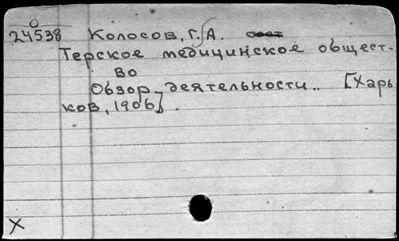 24538 Колосов, Г. А.
Терское медицинское общест-
во
Обзор деятельности.. [Харь
ков, 1906].
X